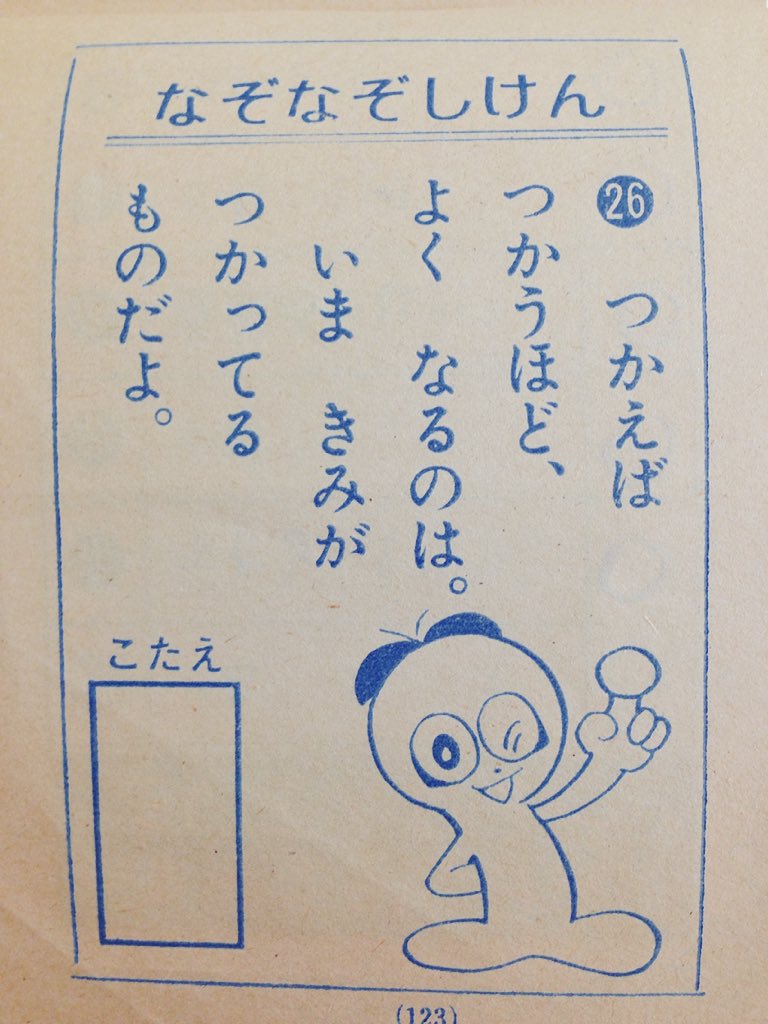 なぞなぞしけん
26 つかえば
つかうほど、
よく なるのは。
いま きみが
つかってる
ものだよ。
こたえ
(123)